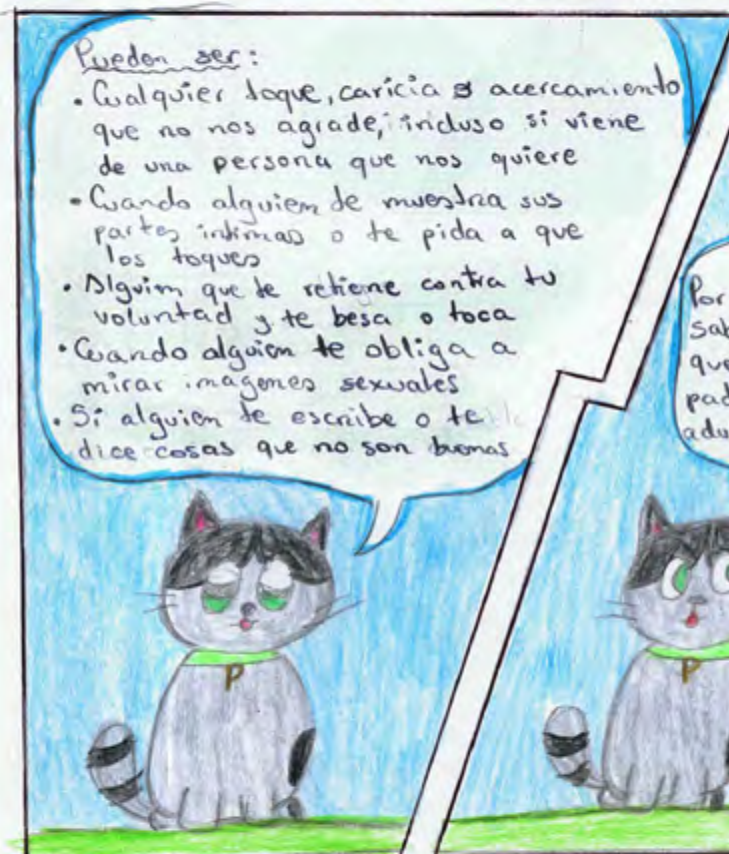 Pueden ser:
• Cualquier toque, caricia o acercamiento
que no nos agrade, incluso si viene
de una persona que nos quiere
• Cuando alguien te muestra sus
partes íntimas o te pida a que
los toques
• Alguien que te retiene contra tu
voluntad y te besa o toca
• Cuando alguien te obliga a
mirar imágenes sexuales
• Si alguien te escribe o te
dice cosas que no son buenas
Por
sab
que
pad
adu
P
P